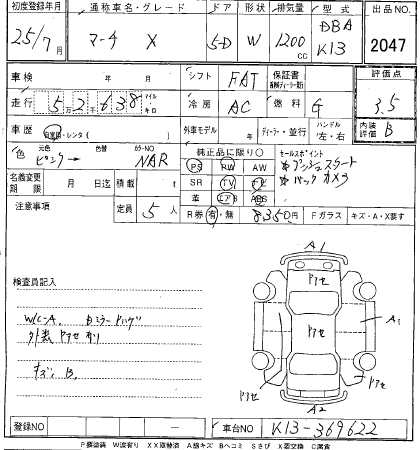 初度登録年月 通称車名・グレード ドア 形状 排気量 型式 出品NO.
25/7月 マーチ X 5D W 1200cc DBA K13 2047
車検 年 月 シフト FAT 保証書 評価点
走行 5万2千638 マイル・キロ 冷房 AC 燃料 G 3.5
車歴 自家用・レンタ( ) 外車モデル 年 ディーラー・並行 ハンドル 左・右 内装評価 B
色 元色 ピンク→ 色替 カラーNO NAR 純正品に限り○ セールスポイント
PS RW AW ☆プッシュスタート
名義変更期限 月 日迄 積載 t SR TV ナビ ☆バックカメラ
革 エアB ABS
注意事項 定員 5人 R券 有・無 8350円 Fガラス キズ・A・X要す
検査員記入
W/C-A. Bミラー ハゲ
外装 ヤケ 有り
キズ、B,
A1
ヤケ
A1
ヤケ
ヤケ
A2
登録NO ー 車台NO K13-369622
P要塗装 W波有り XX取替済 A線キズ Bヘコミ Sさび X要交換 C腐食